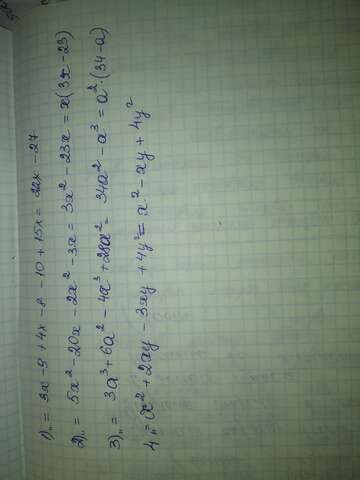 1) „ = 3x - 9 + 4x - 8 - 10 + 15x = 22x - 27
2) „ = 5x² - 20x - 2x² - 3x = 3x² - 23x = x(3x - 23)
3) „ = 3a³ + 6a² - 4a³ + 28a² = 34a² - a³ = a² · (34 - a)
4 „ = x² + 2xy - 3xy + 4y² = x² - xy + 4y²